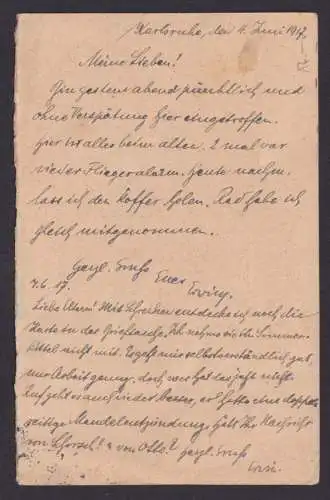 Karlsruhe, den 4. Juni 1917.
Meine Lieben!
Bin gestern abend pünktlich und
ohne Verspätung hier eingetroffen.
Hier ist alles beim alten. 2 mal war
wieder Fliegeralarm. Heute nachm.
lass ich den Koffer holen. Rad habe ich
gleich mitgenommen.
Herzl. Gruss
Euer
Erwin.
7.6.17.
Liebe Eltern! Mit Schrecken entdecke ich noch die
Karte in der Brieftasche. Ich nehme sie im Sommer-
kittel nicht mit. Es geht mir selbstverständlich gut,
nur Arbeit genug, doch wer hat das jetzt nicht.
Aufgeld is auch wieder besser, er hatte eine doppel-
seitige Mandelentzündung. Habt Ihr Nachricht
von Schorsch? u. von Otto? Herzl. Gruss
Erwin.